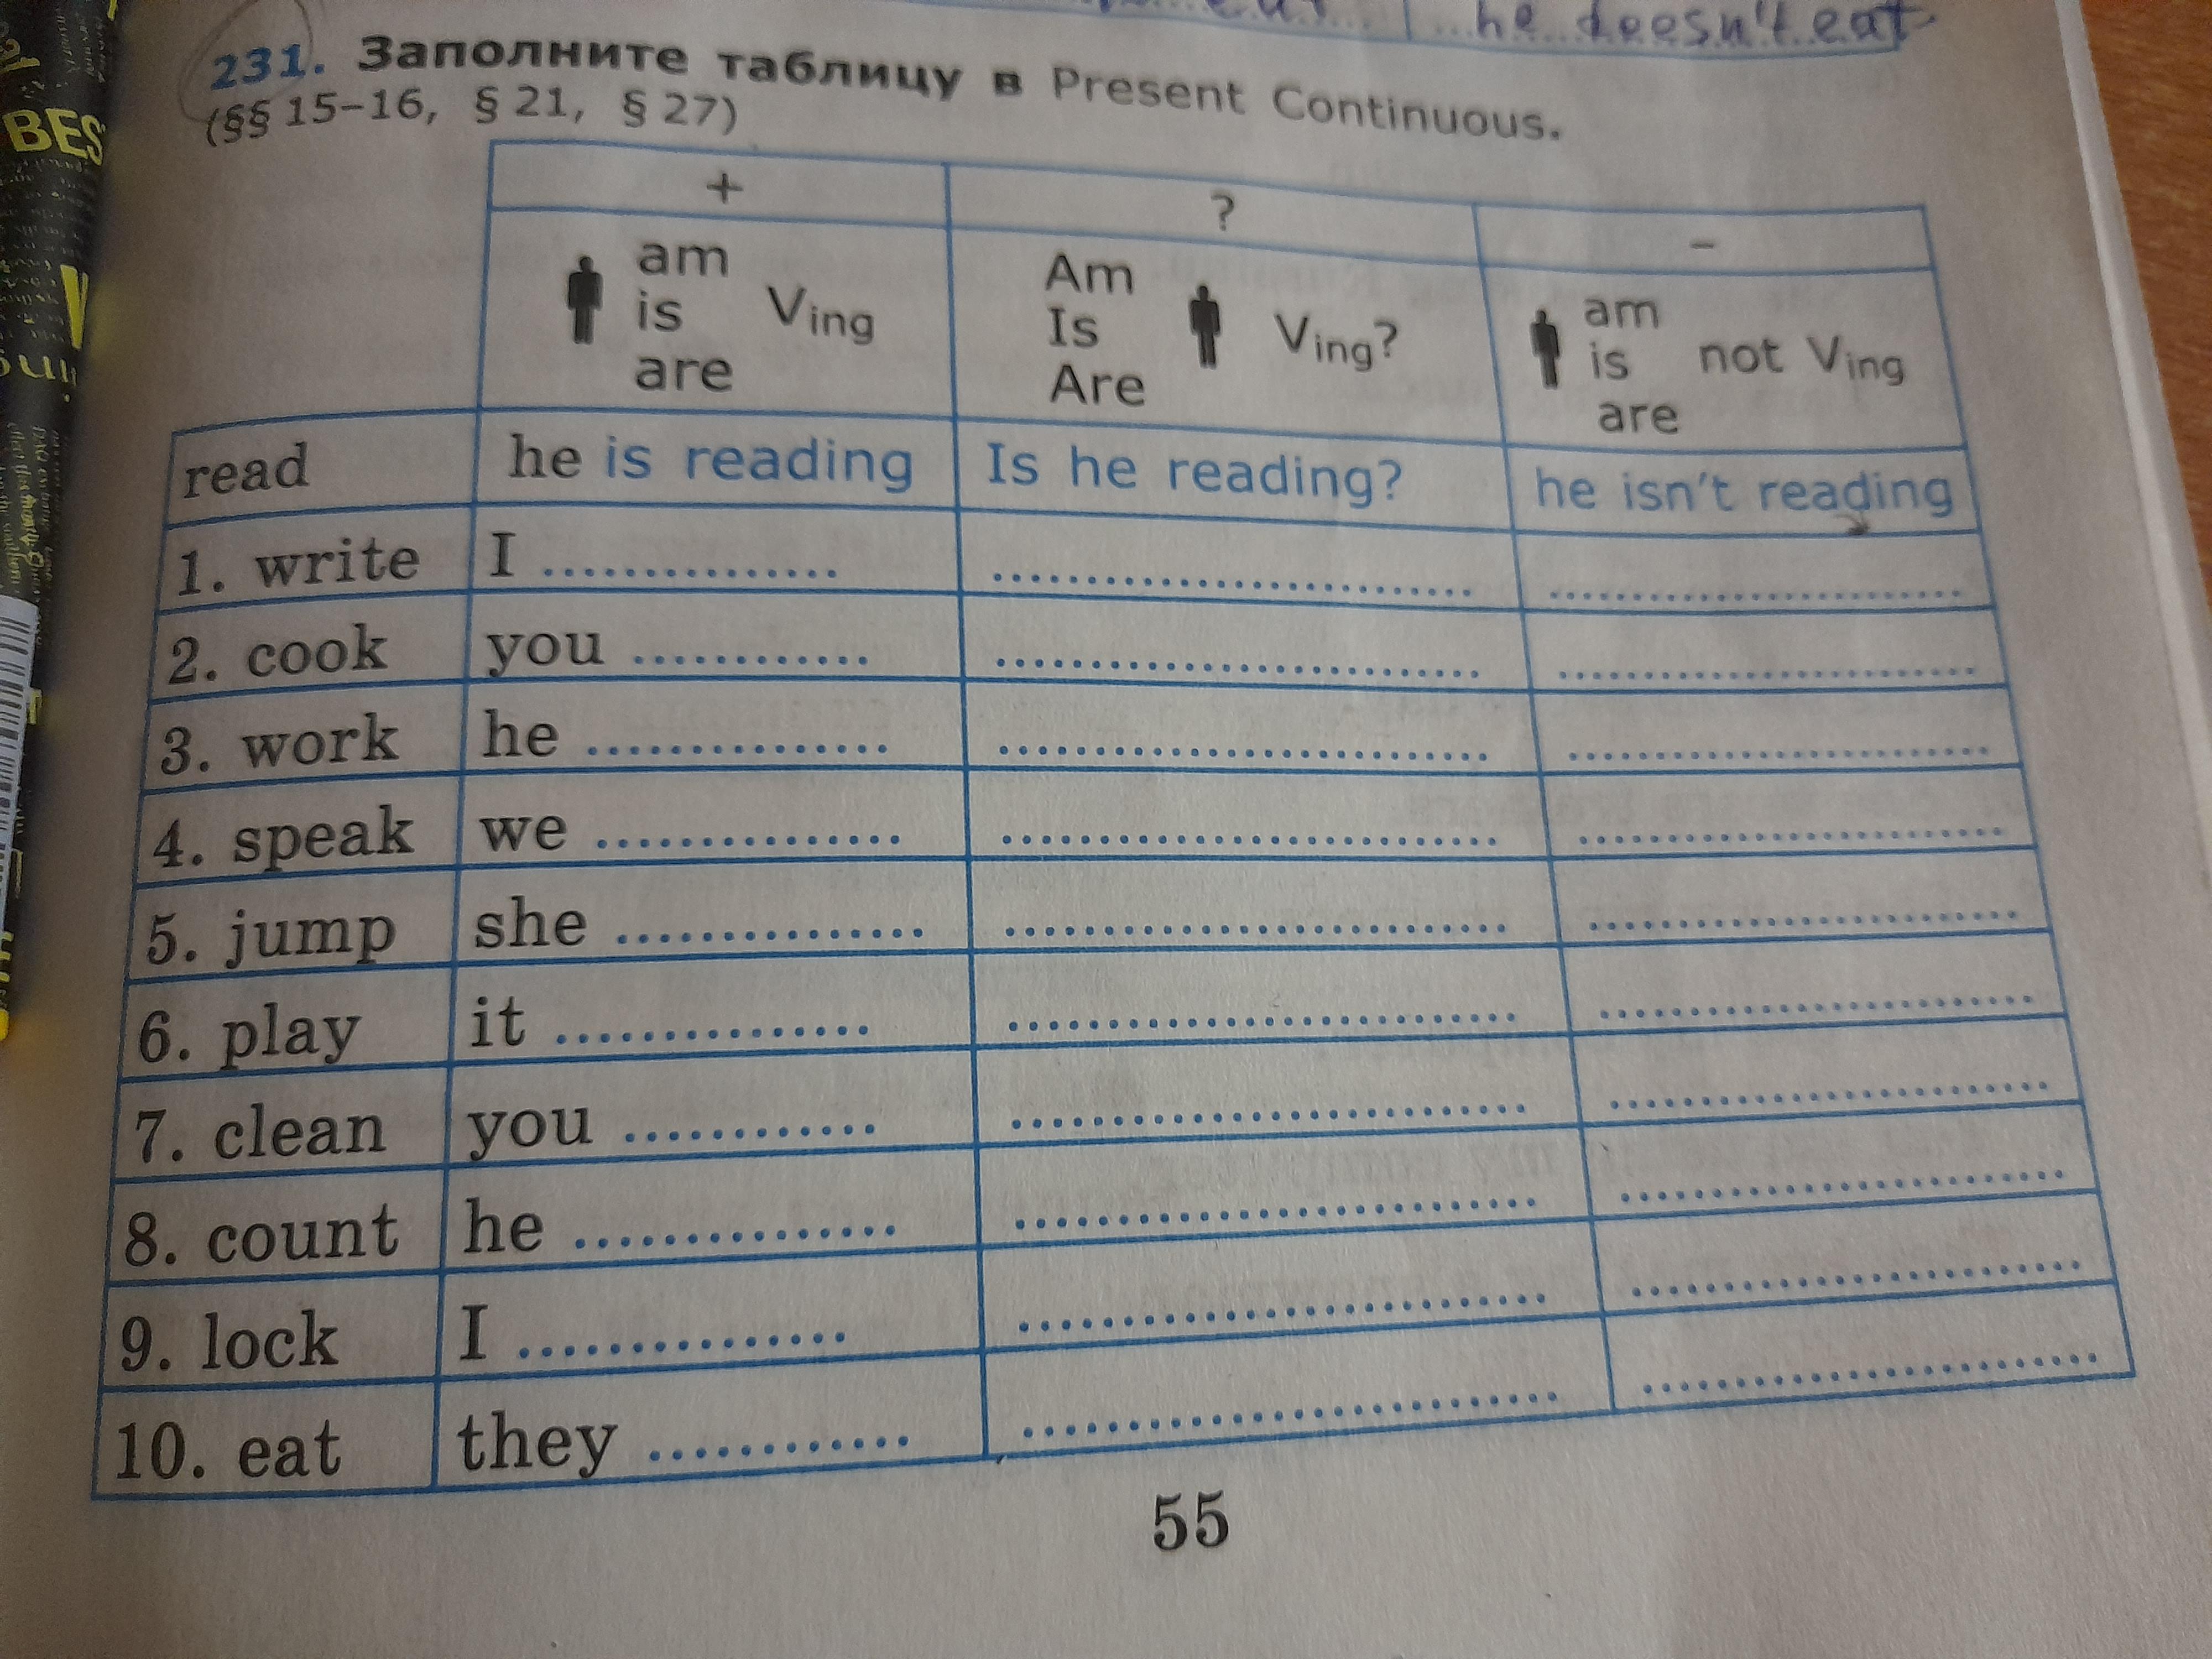 he doesn't eat
231. Заполните таблицу в Present Continuous.
(§§ 15–16, § 21, § 27)
+ ? –
am Am am
is Ving Is Ving? is not Ving
are Are are
read he is reading Is he reading? he isn't reading
1. write I ...............
2. cook you ............
3. work he ...............
4. speak we ...............
5. jump she ...............
6. play it ...............
7. clean you ............
8. count he ...............
9. lock I ...............
10. eat they ............
55
BES